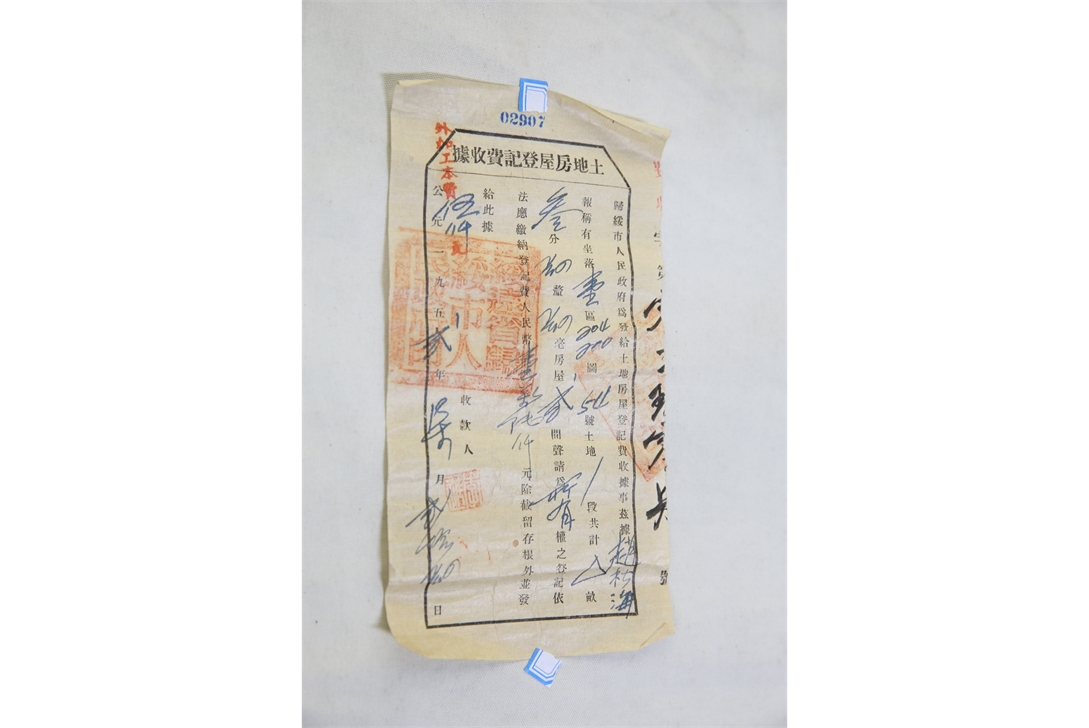 02907
土地房屋登記費收據
歸綏市人民政府爲發給土地房屋登記費收據事茲據趙松海
報稱有坐落壹區204 200圖54號土地1段共計厶畝
叁分 釐 毫房屋貳間聲請爲所有權之登記依
法應繳納登記費人民幣壹 仟元除截留存根外並發
給此據
收款人
公元一九五貳年柒月貳拾 日
外加工本費伍仟元
綏遠省歸綏市人民政府
字第 號